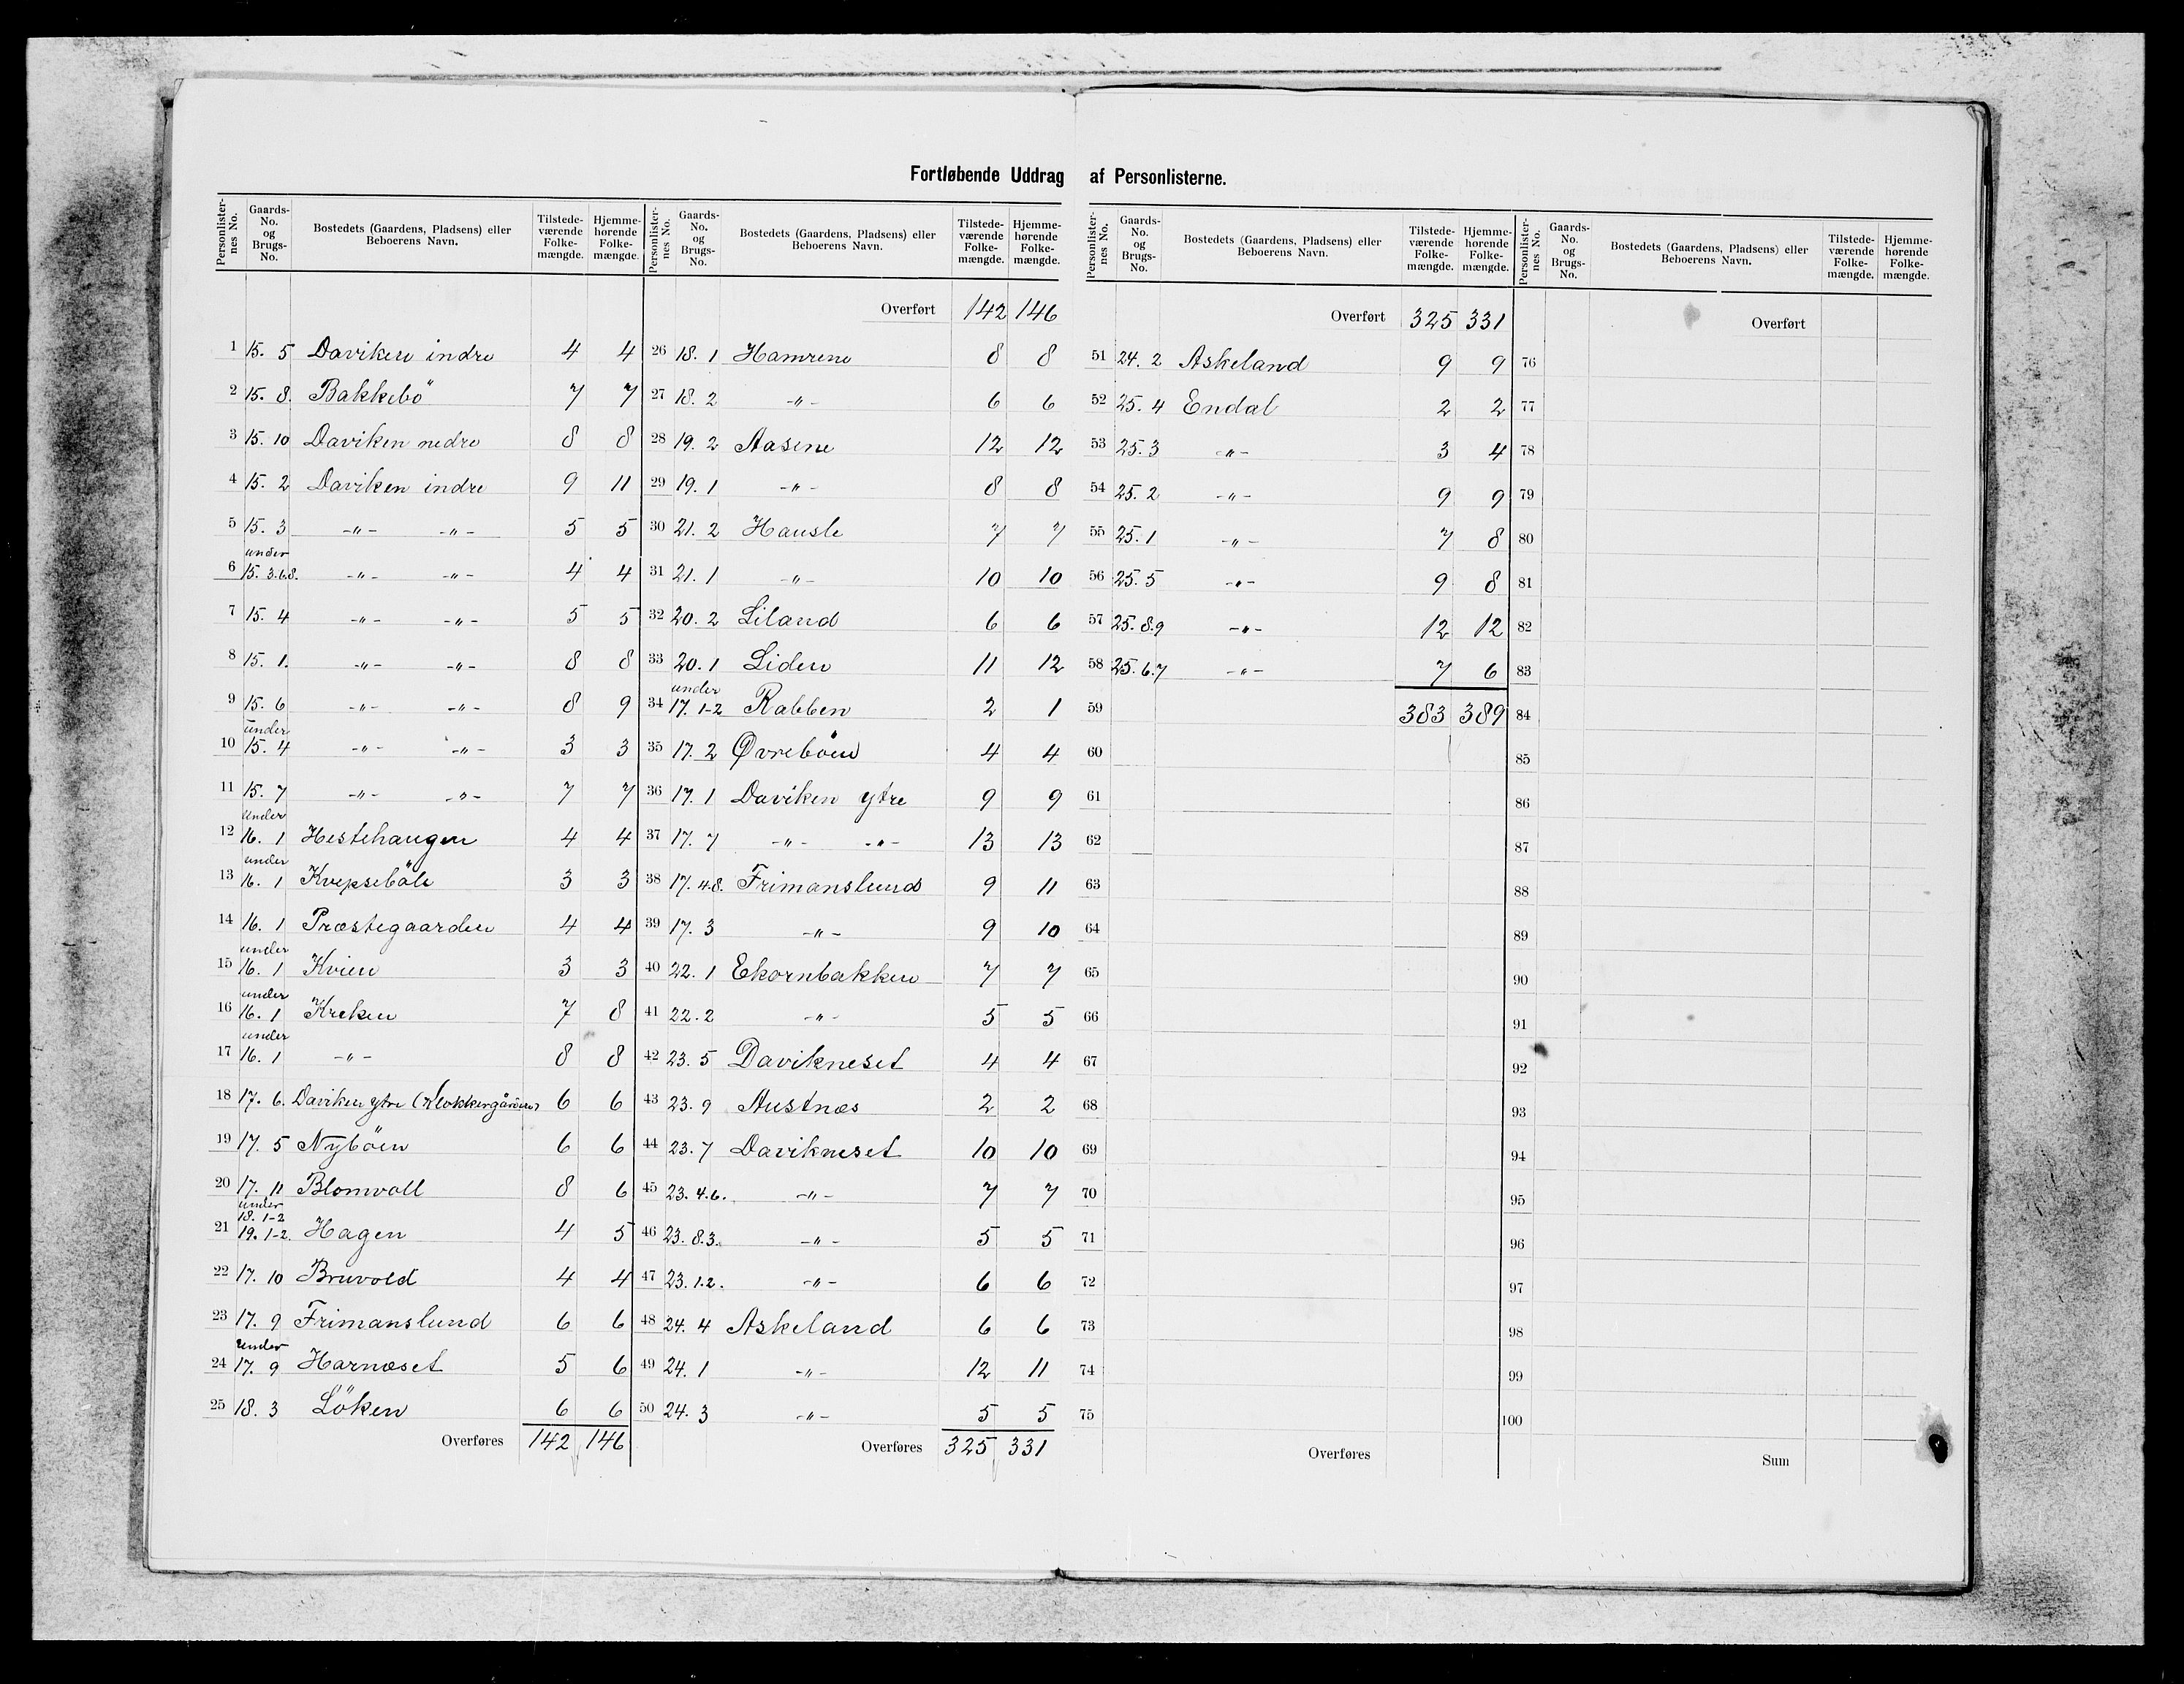 Fortløbende Uddrag af Personlisterne.
Personlisternes No. Gaards-No. og Brugs-No. Bostedets (Gaardens, Pladsens) eller Beboerens Navn. Tilstedeværende Folkemængde. Hjemmehørende Folkemængde.
1 15. 5 Daviken indre 4 4
2 15. 8. Bakkebö 7 7
3 15. 10 Daviken nedre 8 8
4 15. 2 Daviken indre 9 11
5 15. 3 -"- -"- 5 5
6 under 15. 3.6.8. -"- -"- 4 4
7 15. 4 -"- -"- 5 5
8 15. 1. -"- -"- 8 8
9 15. 6 -"- -"- 8 9
10 under 15. 4 -"- -"- 3 3
11 15. 7 -"- -"- 7 7
12 under 16. 1 Hestehaugen 4 4
13 under 16. 1 Kvepseböle 3 3
14 16. 1 Præstegaarden 4 4
15 under 16. 1 Kvien 3 3
16 under 16. 1 Kreken 7 8
17 under 16. 1 -"- 8 8
18 17. 6. Daviken ytre (Klokkergården) 6 6
19 17. 5 Nyböen 6 6
20 17. 11 Blomvoll 8 6
21 under 18. 1-2 19. 1-2. Hagen 4 5
22 17. 10 Bruvold 4 4
23 17. 9 Frimanslund 6 6
24 under 17. 9 Harnæset 5 6
25 18. 3 Löken 6 6
Overføres 142 146
Personlisternes No. Gaards-No. og Brugs-No. Bostedets (Gaardens, Pladsens) eller Beboerens Navn. Tilstedeværende Folkemængde. Hjemmehørende Folkemængde.
Overført 142 146
26 18. 1 Hamrene 8 8
27 18. 2 -"- 6 6
28 19. 2 Aasene 12 12
29 19. 1 -"- 8 8
30 21. 2 Hausle 7 7
31 21. 1 -"- 10 10
32 20. 2 Liland 6 6
33 20. 1 Liden 11 12
34 under 17. 1-2 Rabben 2 1
35 17. 2 Øvreböen 4 4
36 17. 1 Daviken ytre 9 9
37 17. 7 -"- -"- 13 13
38 17. 4.8. Frimanslund 9 11
39 17. 3 -"- 9 10
40 22. 1 Ekornbakken 7 7
41 22. 2 -"- 5 5
42 23. 5 Davikneset 4 4
43 23. 9 Austnæs 2 2
44 23. 7 Davikneset 10 10
45 23. 4.6. -"- 7 7
46 23. 8.3. -"- 5 5
47 23. 1.2. -"- 6 6
48 24. 4 Askeland 6 6
49 24. 1 -"- 12 11
50 24. 3 -"- 5 5
Overføres 325 331
Personlisternes No. Gaards-No. og Brugs-No. Bostedets (Gaardens, Pladsens) eller Beboerens Navn. Tilstedeværende Folkemængde. Hjemmehørende Folkemængde.
Overført 325 331
51 24. 2 Askeland 9 9
52 25. 4 Endal 2 2
53 25. 3 -"- 3 4
54 25. 2 -"- 9 9
55 25. 1 -"- 7 8
56 25. 5 -"- 9 8
57 25. 8.9 -"- 12 12
58 25. 6.7 -"- 7 6
59 383 389
60
61
62
63
64
65
66
67
68
69
70
71
72
73
74
75
Overføres
Personlisternes No. Gaards-No. og Brugs-No. Bostedets (Gaardens, Pladsens) eller Beboerens Navn. Tilstedeværende Folkemængde. Hjemmehørende Folkemængde.
Overført
76
77
78
79
80
81
82
83
84
85
86
87
88
89
90
91
92
93
94
95
96
97
98
99
100
Sum